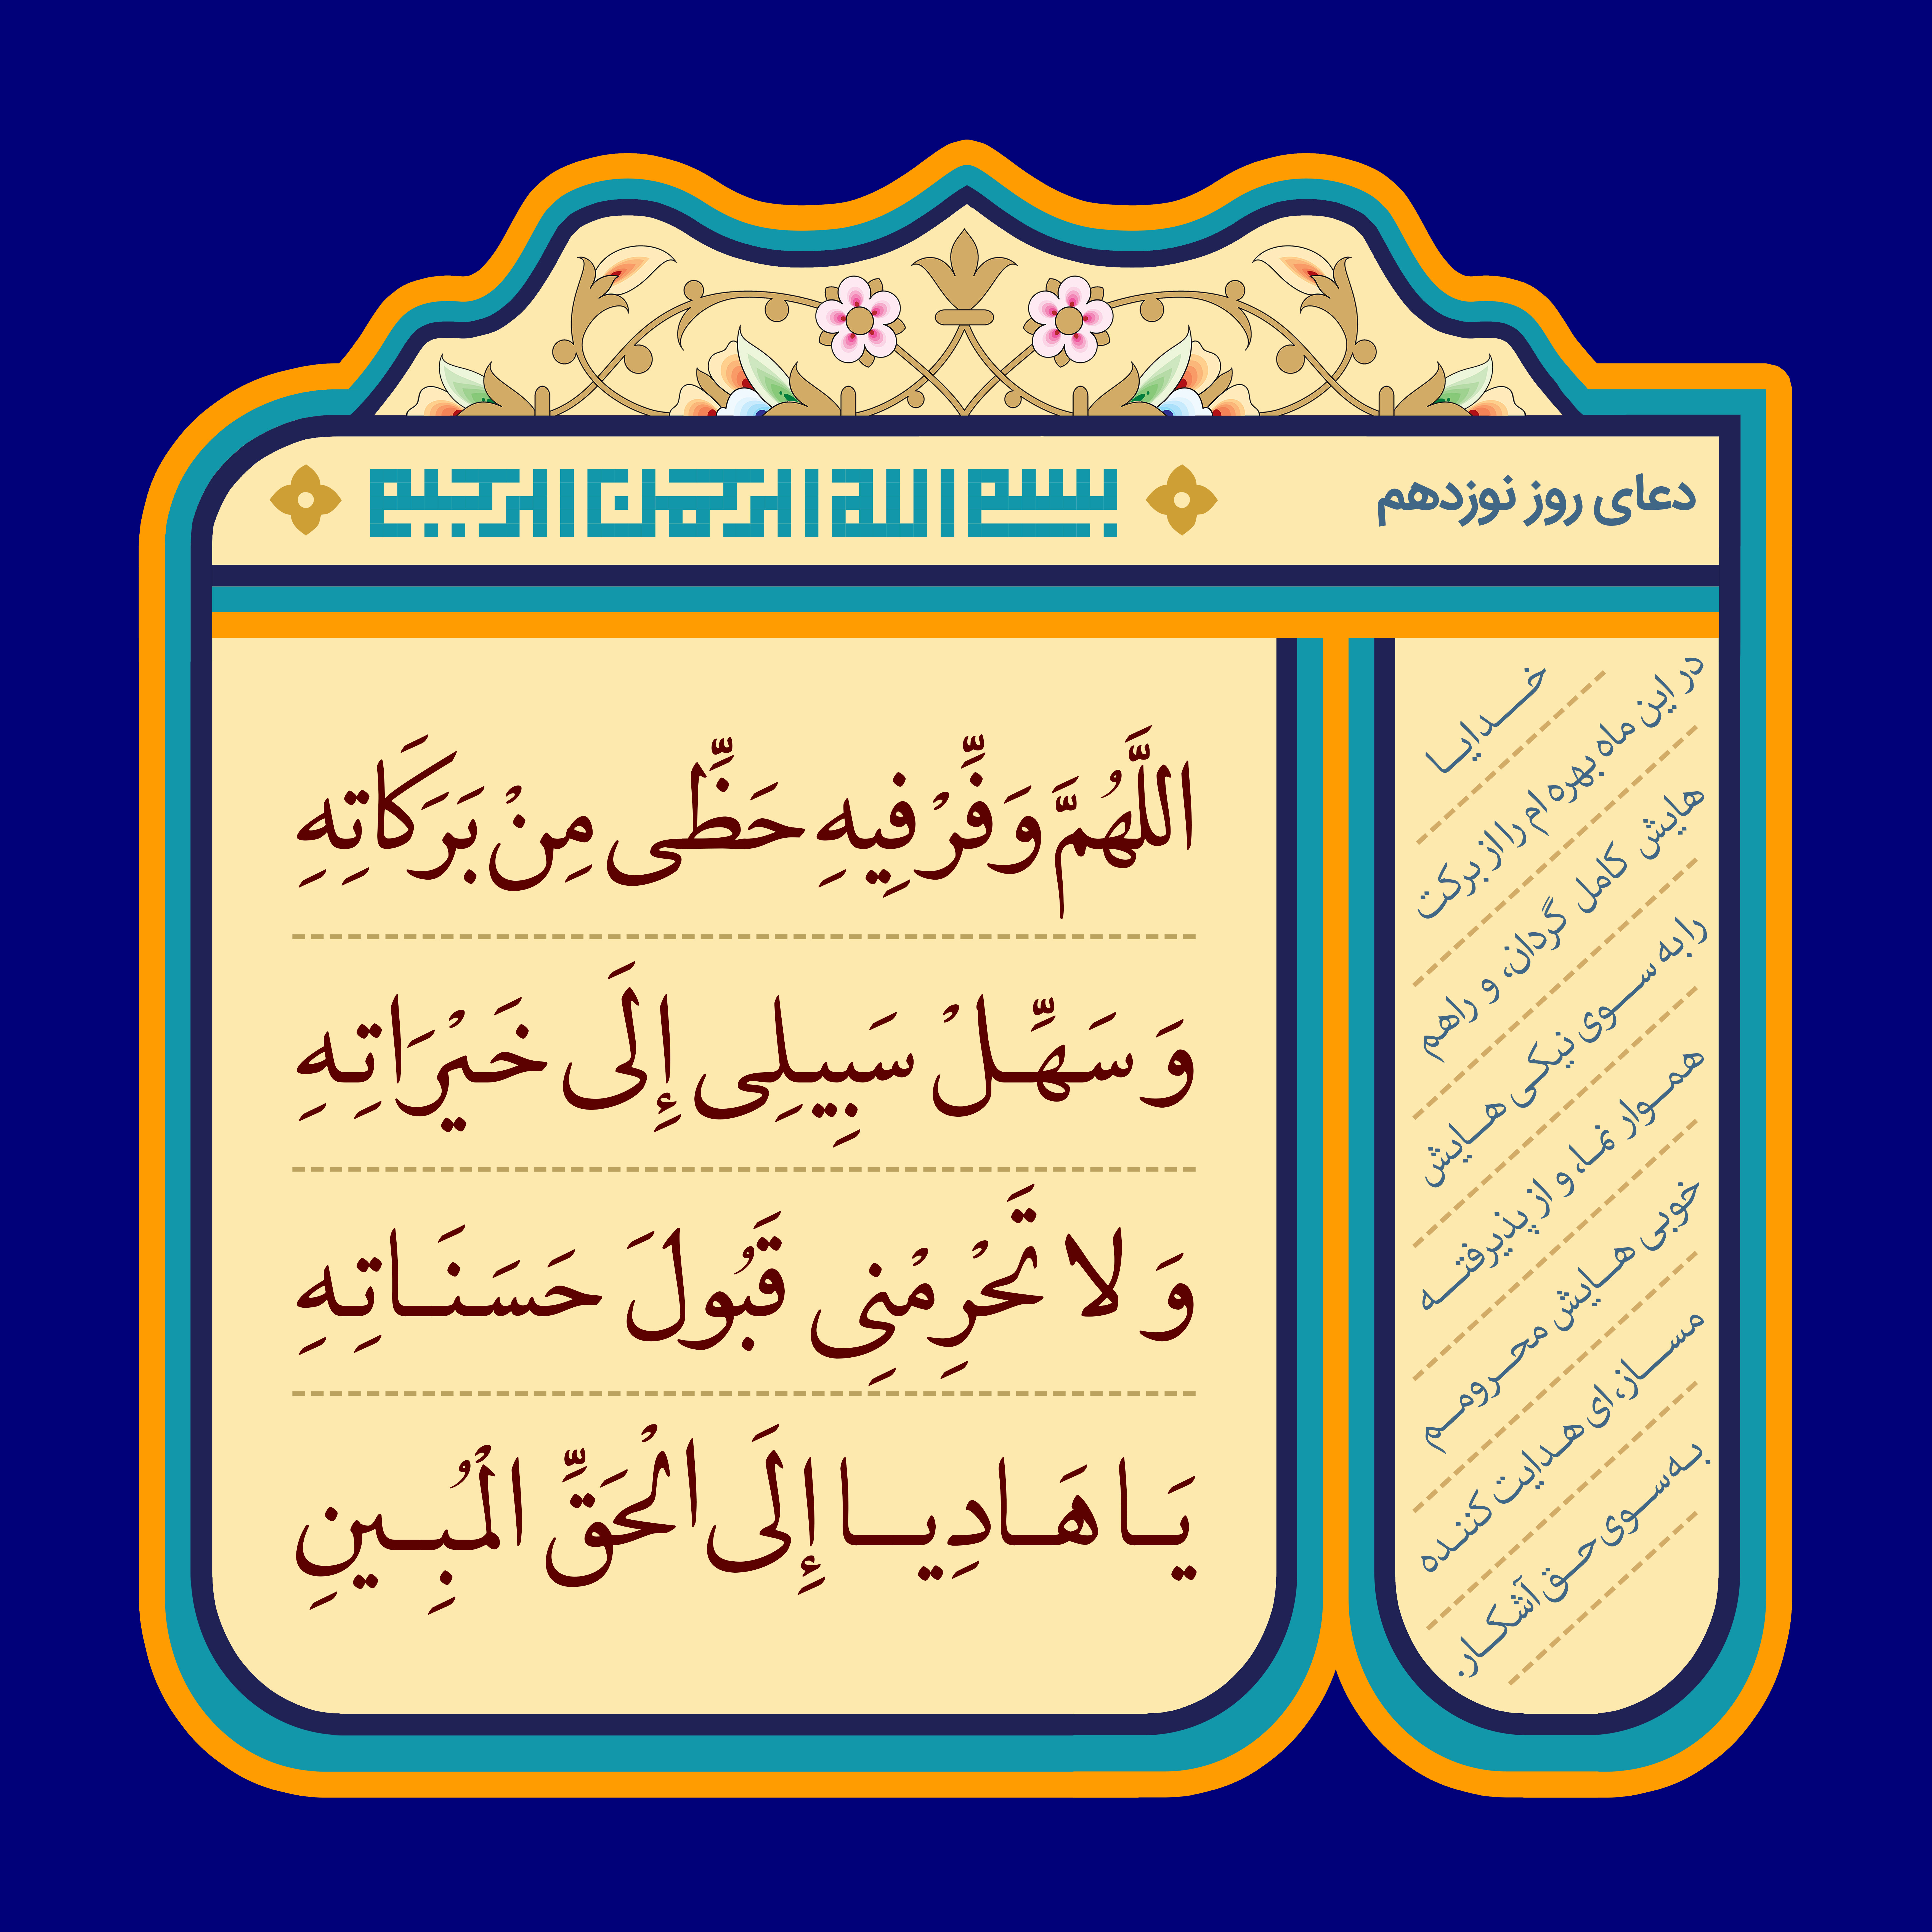 دعای روز نوزدهم
بسم الله الرحمن الرحیم
اللَّهُمَّ وَفِّرْ فِيهِ حَظِّی مِنْ بَرَكَاتِهِ
وَ سَهِّلْ سَبِيلِی إِلَى خَيْرَاتِهِ
وَ لا تَحْرِمْنِی قَبُولَ حَسَنَاتِهِ
يَا هَادِيا إِلَى الْحَقِّ الْمُبِينِ
خدایا
در این ماه بهره ام را از برکت
هایش کامل گردان، و راهم
را به سوی نیکی هایش
هموار نما، و از پذیرفته
خوبی هایش محرومم
مساز، ای هدایت کننده
به سوی حق آشکار.